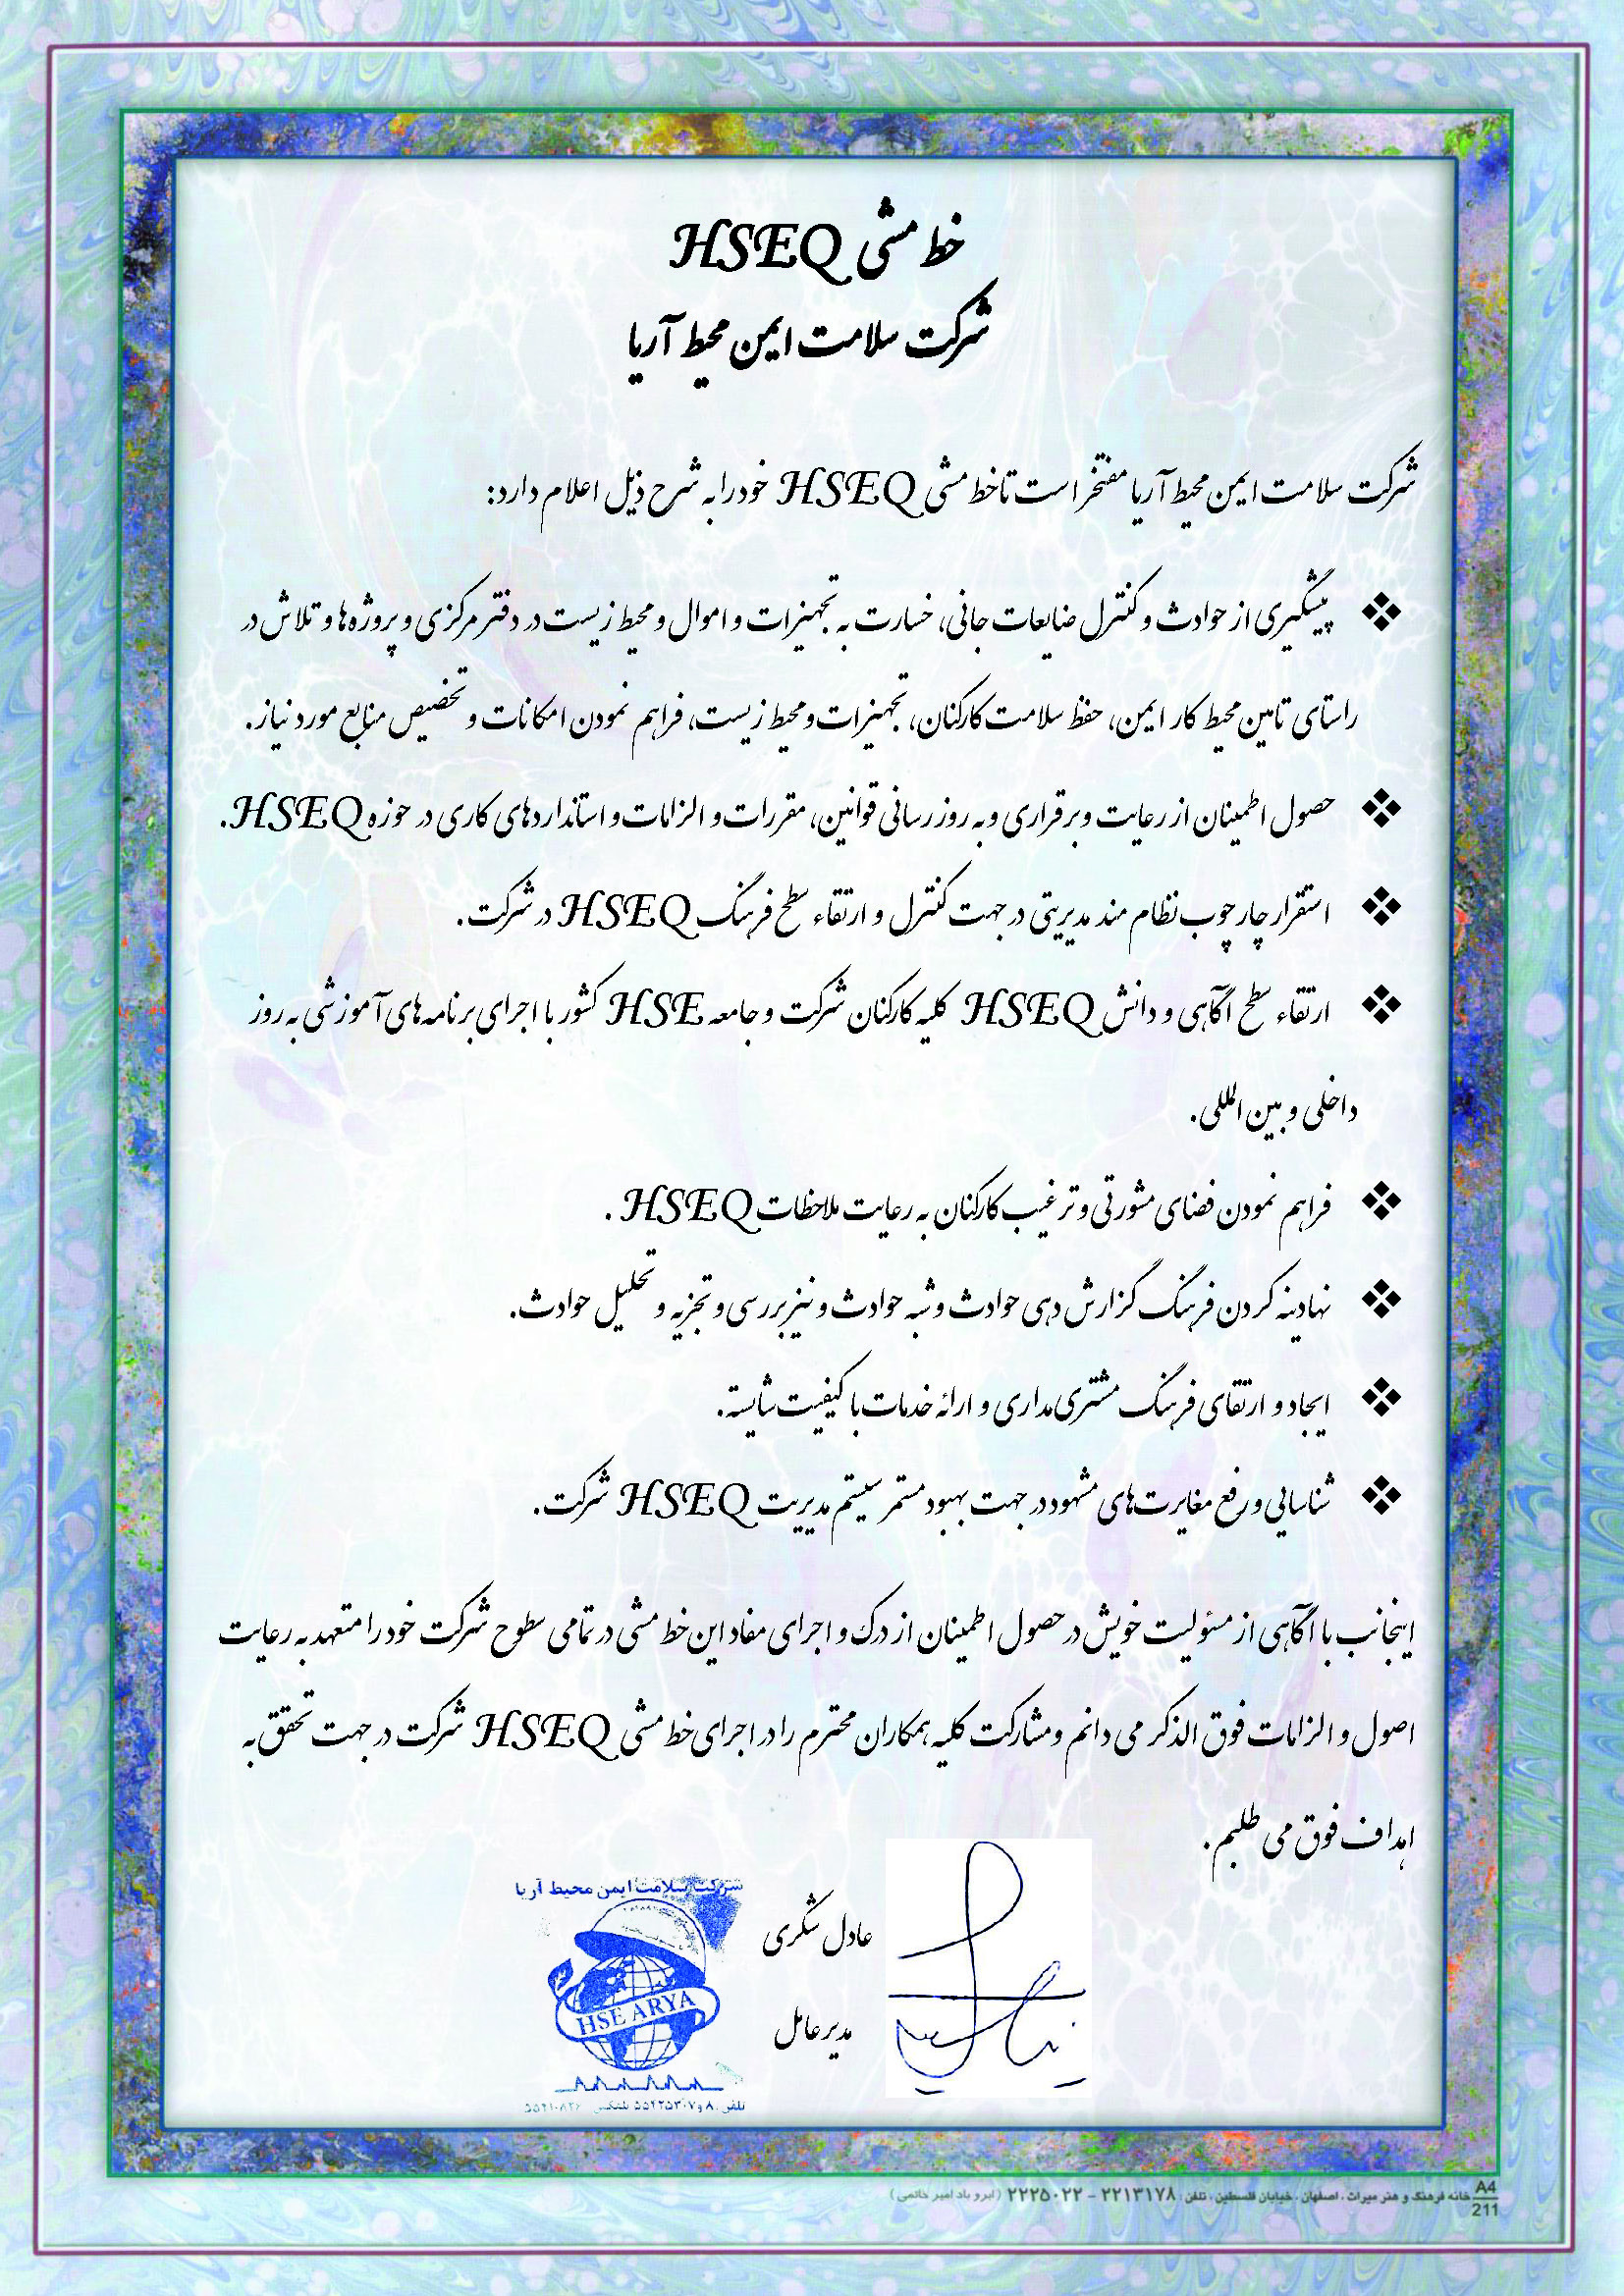 خط مشی HSEQ
شرکت سلامت ایمن محیط آریا
شرکت سلامت ایمن محیط آریا مفتخر است تا خط مشی HSEQ خود را به شرح ذیل اعلام دارد:
❖ پیشگیری از حوادث و کنترل ضایعات جانی، خسارت به تجهیزات و اموال و محیط زیست در دفتر مرکزی و پروژه ها و تلاش در
راستای تامین محیط کار ایمن، حفظ سلامت کارکنان، تجهیزات و محیط زیست، فراهم نمودن امکانات و تخصیص منابع مورد نیاز.
❖ حصول اطمینان از رعایت و برقراری و به روز رسانی قوانین، مقررات و الزامات و استانداردهای کاری در حوزه HSEQ.
❖ استقرار چارچوب نظام مند مدیریتی در جهت کنترل و ارتقاء سطح فرهنگ HSEQ در شرکت.
❖ ارتقاء سطح آگاهی و دانش HSEQ کلیه کارکنان شرکت و جامعه HSE کشور با اجرای برنامه های آموزشی به روز
داخلی و بین المللی.
❖ فراهم نمودن فضای مشورتی و ترغیب کارکنان به رعایت ملاحظات HSEQ .
❖ نهادینه کردن فرهنگ گزارش دهی حوادث و شبه حوادث و نیز بررسی و تجزیه و تحلیل حوادث.
❖ ایجاد و ارتقای فرهنگ مشتری مداری و ارائه خدمات با کیفیت شایسته.
❖ شناسایی و رفع مغایرت های مشهود در جهت بهبود مستمر سیستم مدیریت HSEQ شرکت.
اینجانب با آگاهی از مسئولیت خویش در حصول اطمینان از درک و اجرای مفاد این خط مشی در تمامی سطوح شرکت خود را متعهد به رعایت
اصول و الزامات فوق الذکر می دانم و مشارکت کلیه همکاران محترم را در اجرای خط مشی HSEQ شرکت در جهت تحقق به
اهداف فوق می طلبم.
شرکت سلامت ایمن محیط آریا
عادل شکری
HSE ARYA
مدیرعامل
تلفن: ۸ و ۵۵۴۲۵۳۰۷ تلفکس:
A4
211
خانه فرهنگ و هنر میراث ، اصفهان ، خیابان فلسطین ، تلفن : ۲۲۱۳۱۷۸ - ۲۲۲۵۰۲۲ (ابرو باد امیر خاتمی)